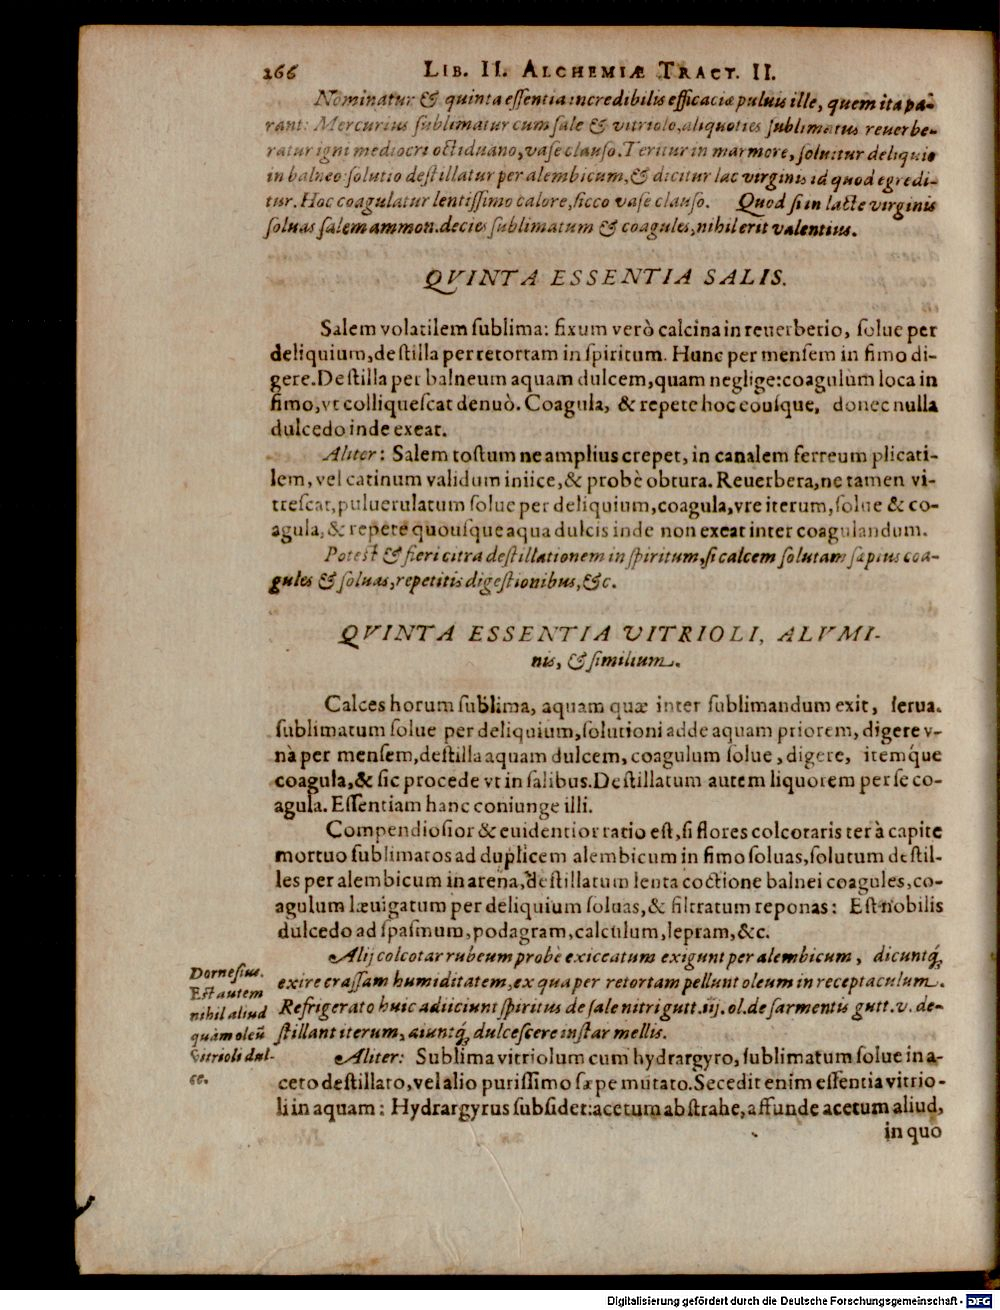 266 LIB. II. ALCHEMIÆ TRACT. II.
Nominatur & quinta essentia incredibilis efficaciæ puluis ille, quem ita pa-
rant: Mercurius sublimatur cum sale & vitriolo, aliquoties sublimatus reuerbe-
ratur igni mediocri octiduano, vase clauso. Teritur in marmore, soluitur deliquio
in balneo: solutio destillatur per alembicum, & dicitur lac virginis id quod egredi-
tur. Hoc coagulatur lentissimo calore, sicco vase clauso. Quod si in lacte virginis
soluas salem ammon. decies sublimatum & coagules, nihil erit valentius.
QVINTA ESSENTIA SALIS.
Salem volatilem sublima: fixum verò calcina in reuerberio, solue per
deliquium, destilla per retortam in spiritum. Hunc per mensem in fimo di-
gere. Destilla per balneum aquam dulcem, quam neglige: coagulum loca in
fimo, vt colliquescat denuò. Coagula, & repete hoc eousque, donec nulla
dulcedo inde exeat.
Aliter: Salem tostum ne amplius crepet, in canalem ferreum plicati-
lem, vel catinum validum iniice, & probè obtura. Reuerbera, ne tamen vi-
trescat, puluerulatum solue per deliquium, coagula, vre iterum, solue & co-
agula, & repete quousque aqua dulcis inde non exeat inter coagulandum.
Potest & fieri citra destillationem in spiritum, si calcem solutam sæpius coa-
gules & soluas, repetitis digestionibus, &c.
QVINTA ESSENTIA VITRIOLI, ALVMI-
nis, & similium.
Calces horum sublima, aquam quæ inter sublimandum exit, serua.
sublimatum solue per deliquium, solutioni adde aquam priorem, digere v-
nà per mensem, destilla aquam dulcem, coagulum solue, digere, itemq́ue
coagula, & sic procede vt in salibus. Destillatum autem liquorem per se co-
agula. Essentiam hanc coniunge illi.
Compendiosior & euidentior ratio est, si flores colcotaris ter à capite
mortuo sublimatos ad duplicem alembicum in fimo soluas, solutum destil-
les per alembicum in arena, destillatum lenta coctione balnei coagules, co-
agulum læuigatum per deliquium soluas, & filtratum reponas: Est nobilis
dulcedo ad spasmum, podagram, calculum, lepram, &c.
Alij colcotar rubeum probè exiccatum exigunt per alembicum, dicuntq́;
exire crassam humiditatem, ex qua per retortam pellunt oleum in receptaculum.
Refrigerato huic adiiciunt spiritus de sale nitri gutt. iij. ol. de sarmentis gutt. v. de-
stillant iterum, aiuntq́; dulcescere instar mellis.
Dornesius.
Est autem
nihil aliud
quàm oleū
vitrioli dul-
ce.
Aliter: Sublima vitriolum cum hydrargyro, sublimatum solue in a-
ceto destillato, vel alio purissimo sæpe mutato. Secedit enim essentia vitrio-
li in aquam: Hydrargyrus subsidet: acetum abstrahe, affunde acetum aliud,
in quo
Digitalisierung gefördert durch die Deutsche Forschungsgemeinschaft - DFG